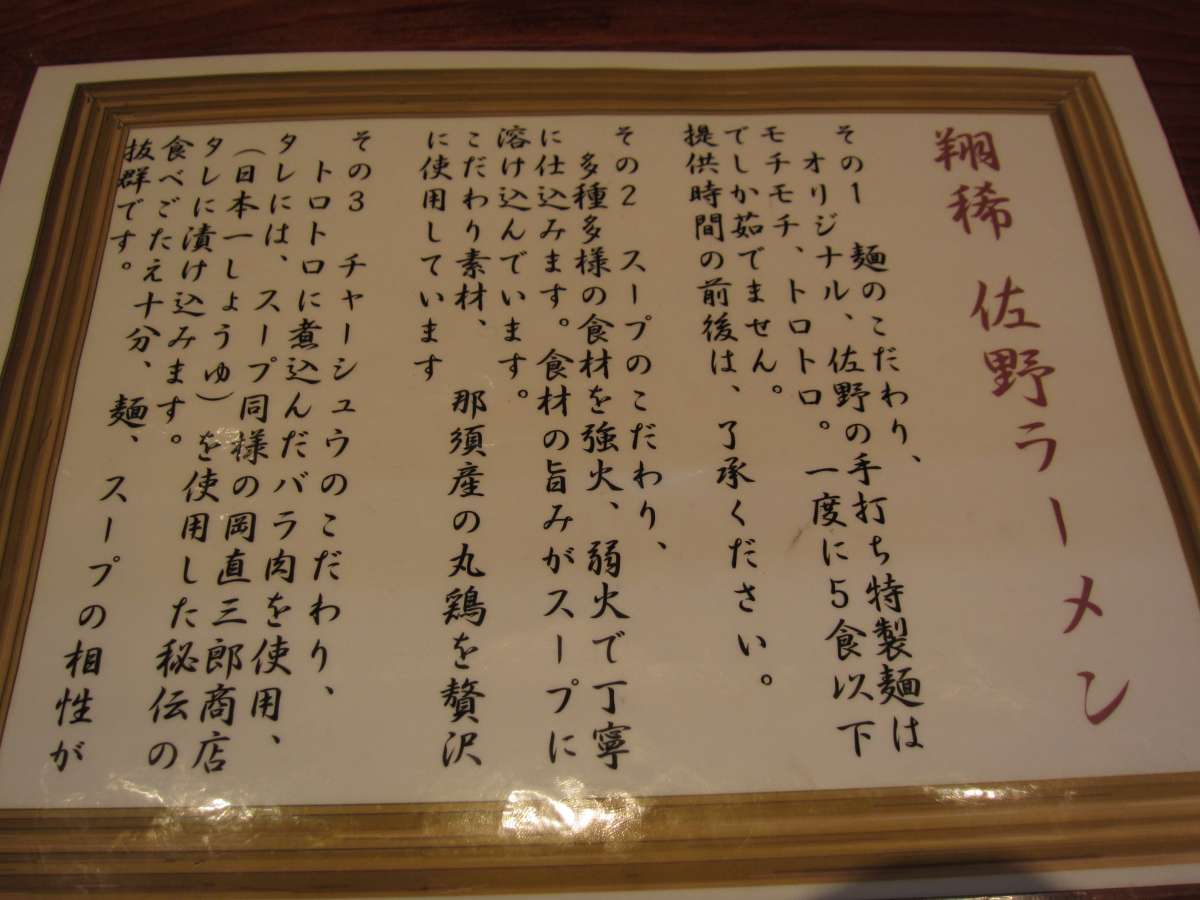 翔稀 佐野ラーメン
その1 麺のこだわり、
オリジナル、佐野の手打ち特製麺は
モチモチ、トロトロ。一度に5食以下
でしか茹でません。
提供時間の前後は、了承ください。
その2 スープのこだわり、
多種多様の食材を強火、弱火で丁寧
に仕込みます。食材の旨みがスープに
溶け込んでいます。
こだわり素材、 那須産の丸鶏を贅沢
に使用しています
その3 チャーシュウのこだわり、
トロトロに煮込んだバラ肉を使用、
タレには、スープ同様の岡直三郎商店
(日本一しょうゆ)を使用した秘伝の
タレに漬け込みます。
食べごたえ十分、麺、スープの相性が
抜群です。